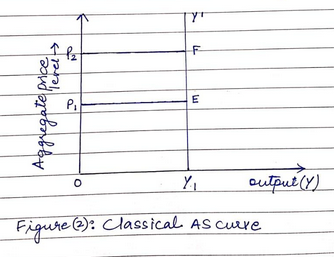 Y'
P2 F
Aggregate price level →
P1 E
0 Y1 output (Y)
Figure (2): Classical AS curve